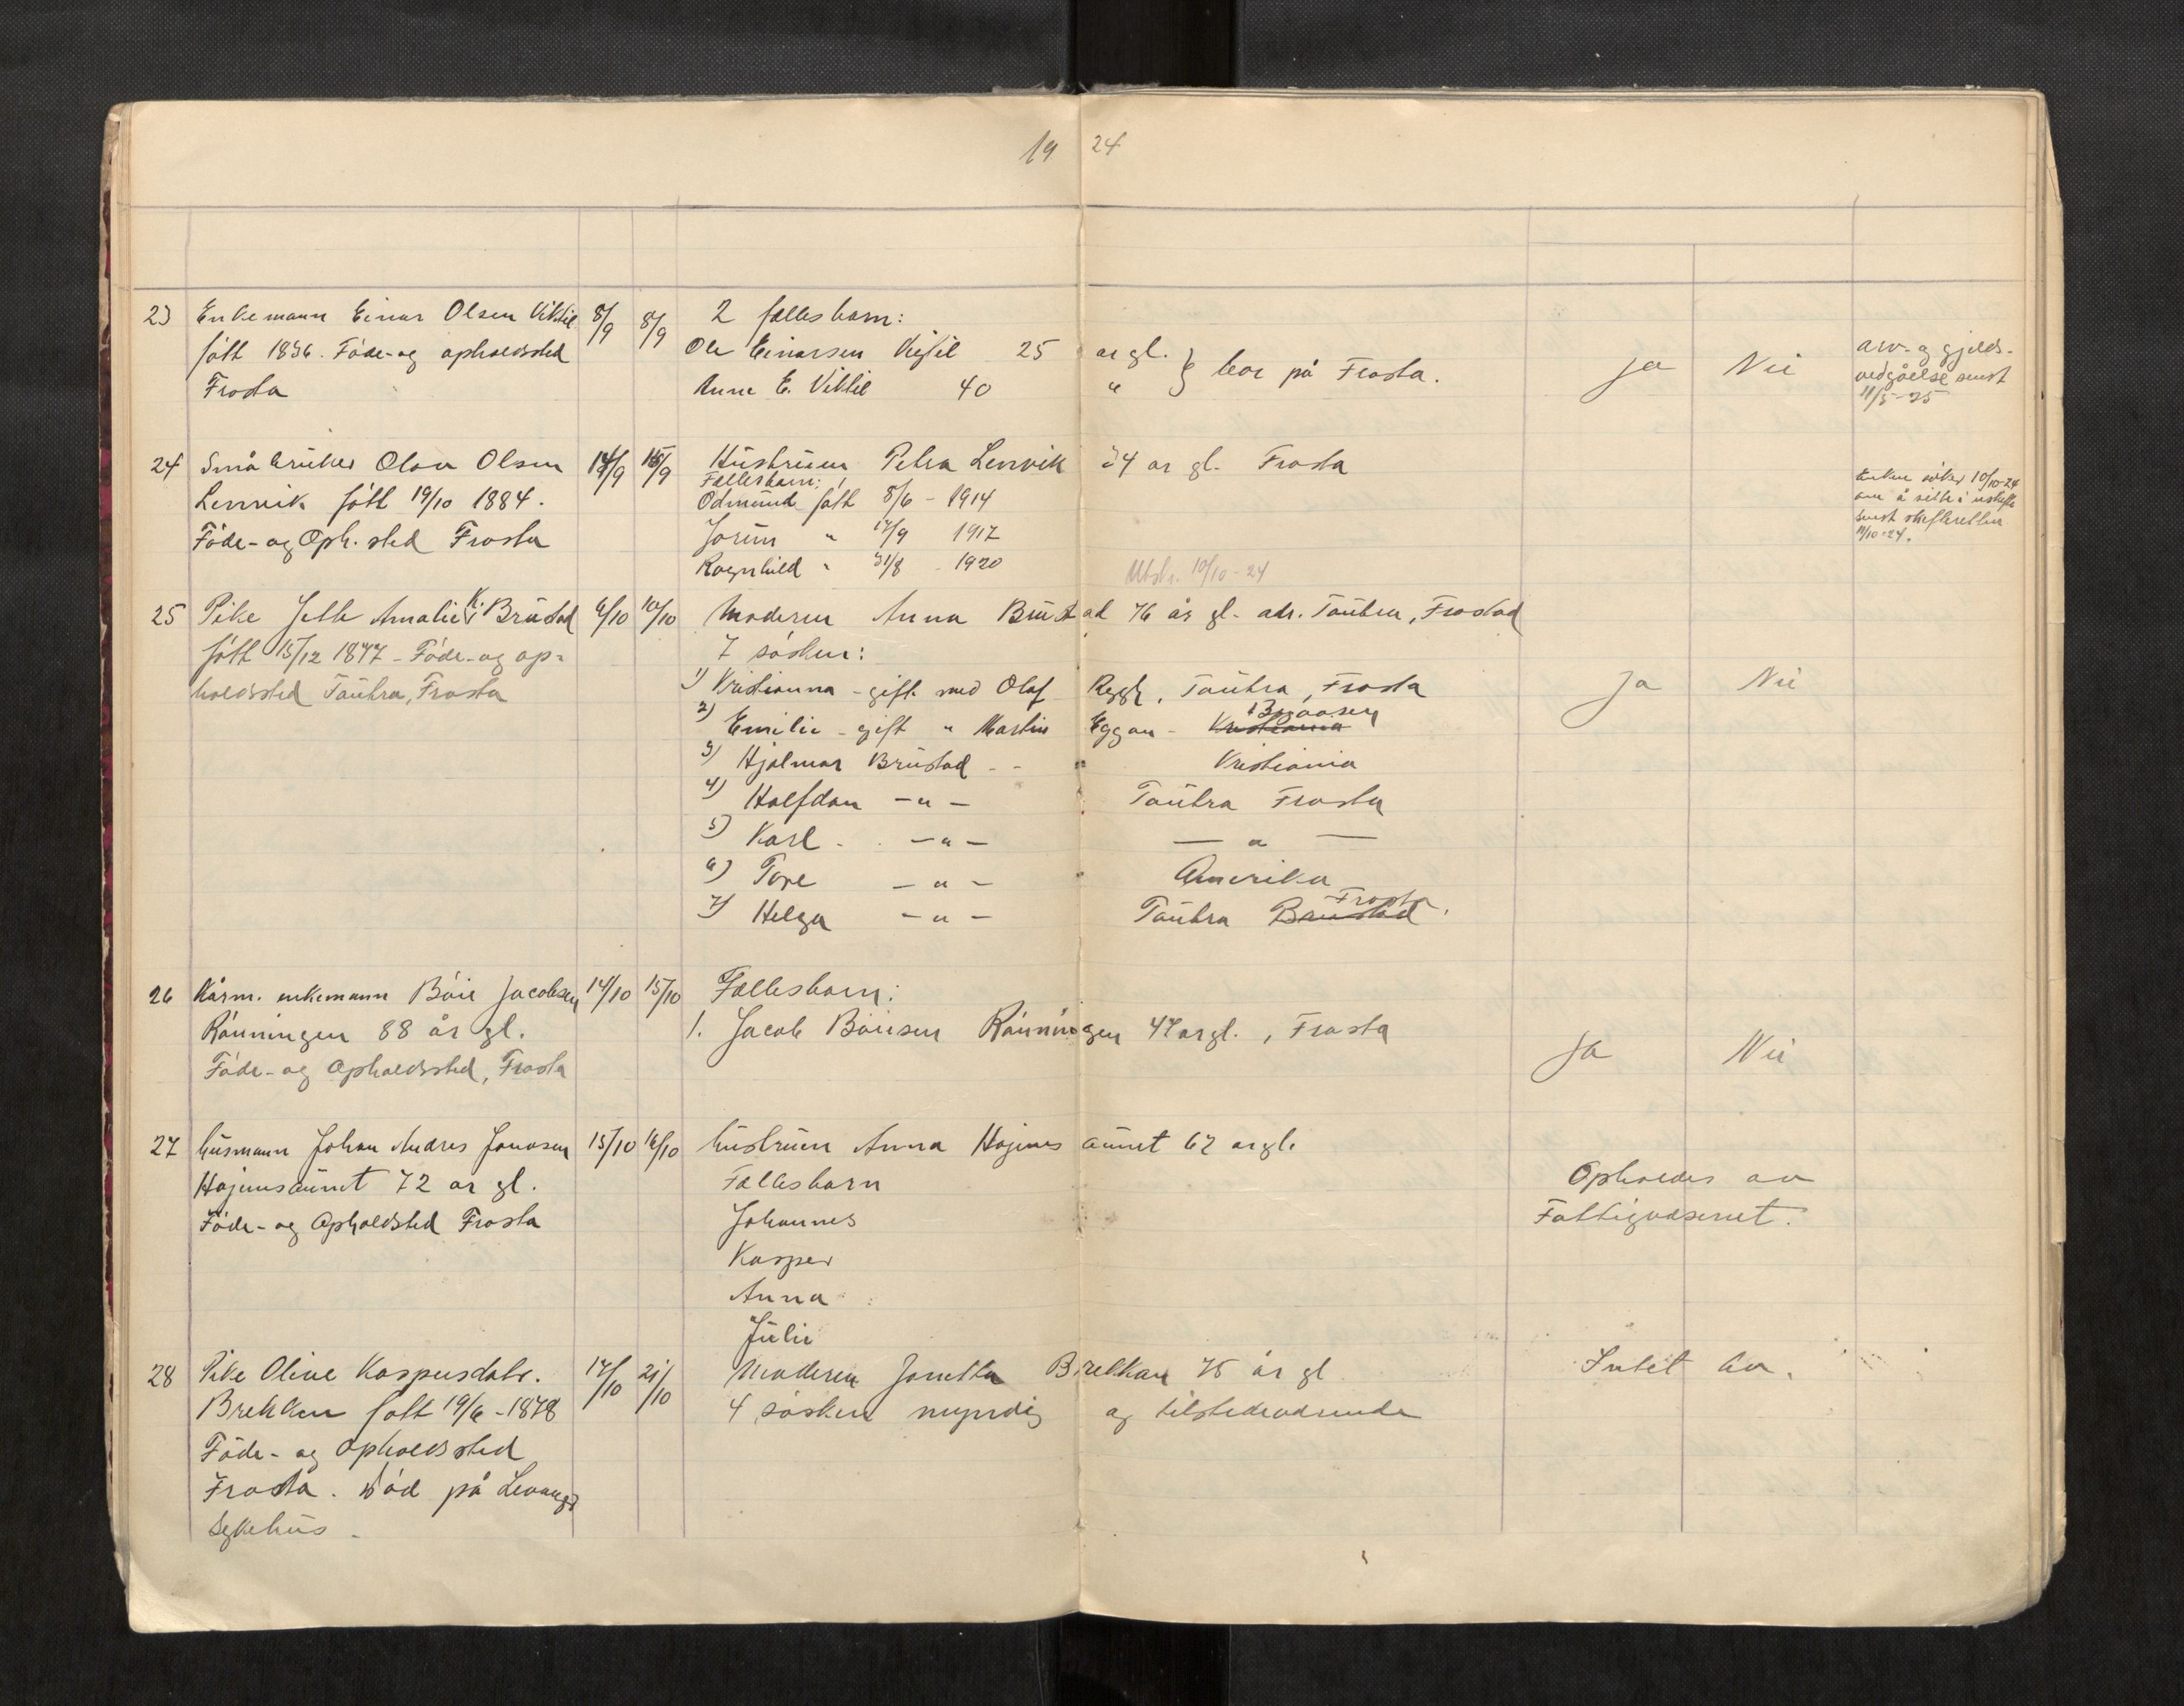 19 24
23 Enkemann Einar Olsen Viktil 8/9 8/9 2 fellesbarn:
født 1836. Føde- og opholdssted Ole Einarsen Viktil 25 år gl. } bor på Frosta. Ja Nei arv- og gjelds-
Frosta Anne E. Viktil 40 " vedgåelse sendt
11/5-25
24 Småbruker Olav Olsen 14/9 15/9 Hustruen Petra Lervik 34 år gl. Frosta
Lervik født 19/10 1884. Fellesbarn:
Føde- og Oph. sted Frosta Odmund født 8/6 - 1914
Jorun " 17/9 1917
Ragnhild " 31/8 - 1920
Enken søker 10/10-24
om å sitte i uskifte
sendt skifteretten
11/10-24.
Utskr. 10/10-24
25 Pike Jette Amalie K. Brustad 6/10 10/10 Moderen Anna Brustad 76 år gl. adr. Tautra, Frostad
født 15/12 1877 - Føde- og op- 7 søsken:
holdssted Tautra, Frosta 1) Kristianna - gift med Olaf Tautra, Frosta Ja Nei
2) Emilie - gift " Martin Eggan - Kristiania
3) Hjalmar Brustad - - Kristiania
4) Halfdan - " - Tautra Frosta
5) Karl - " - - " -
6) Tore - " - Amerika
7) Helga - " - Tautra Brustad Frosta.
26 Kårm. enkemann Bøie Jacobsen 14/10 15/10 Fellesbarn:
Rønningen 88 år gl. 1. Jacob Bøiesen Rønningen 47 år gl., Frosta
Føde- og Opholdssted, Frosta Ja Nei
27 Husmann Johan Andres Jonasen 15/10 16/10 Hustruen Anna Hojemsaunet 62 år gl.
Hojemsaunet 72 år gl. Fellesbarn Opholdes av
Føde- og Opholdsted Frosta Johannes Fattigvæsenet.
Kasper
Anna
Julie
28 Pike Oline Kaspersdatr. 17/10 21/10 Moderen Jonetta Brekkan 75 år gl Intet bo.
Brekken født 19/6 - 1878 4 søsken myndig og tilstedeværende
Føde- og Opholdssted
Frosta. Død på Levanger
sykehus -